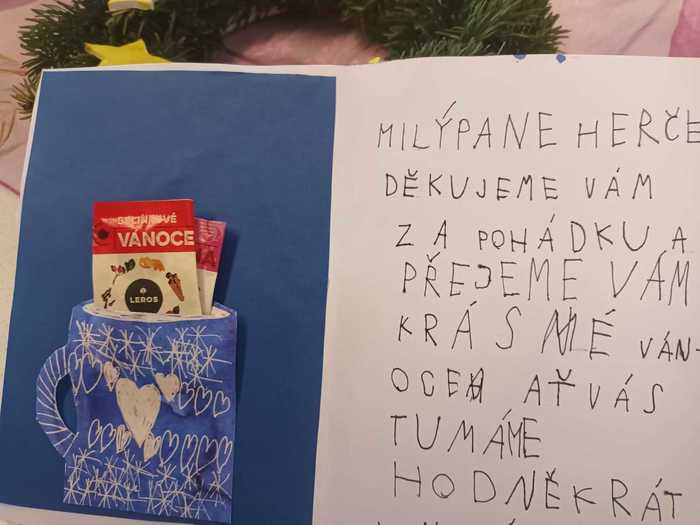 VÁNOCE
LEROS
MILÝPANE HERČE
DĚKUJEME VÁM
ZA POHÁDKU A
PŘEJEME VÁM
KRÁSNÉ VÁN-
OCE AŤ VÁS
TU MÁME
HODNĚKRÁT